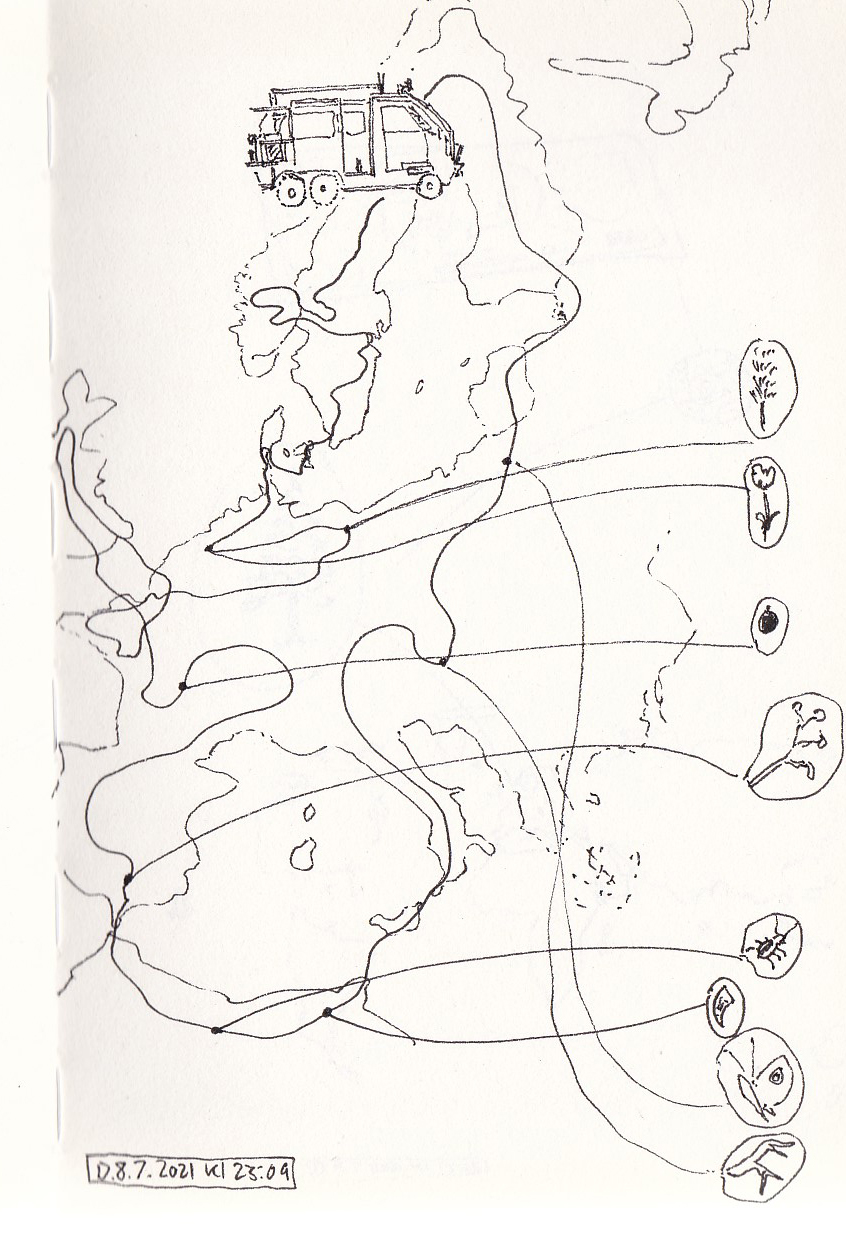 D.8.7.2021 kl 23:09